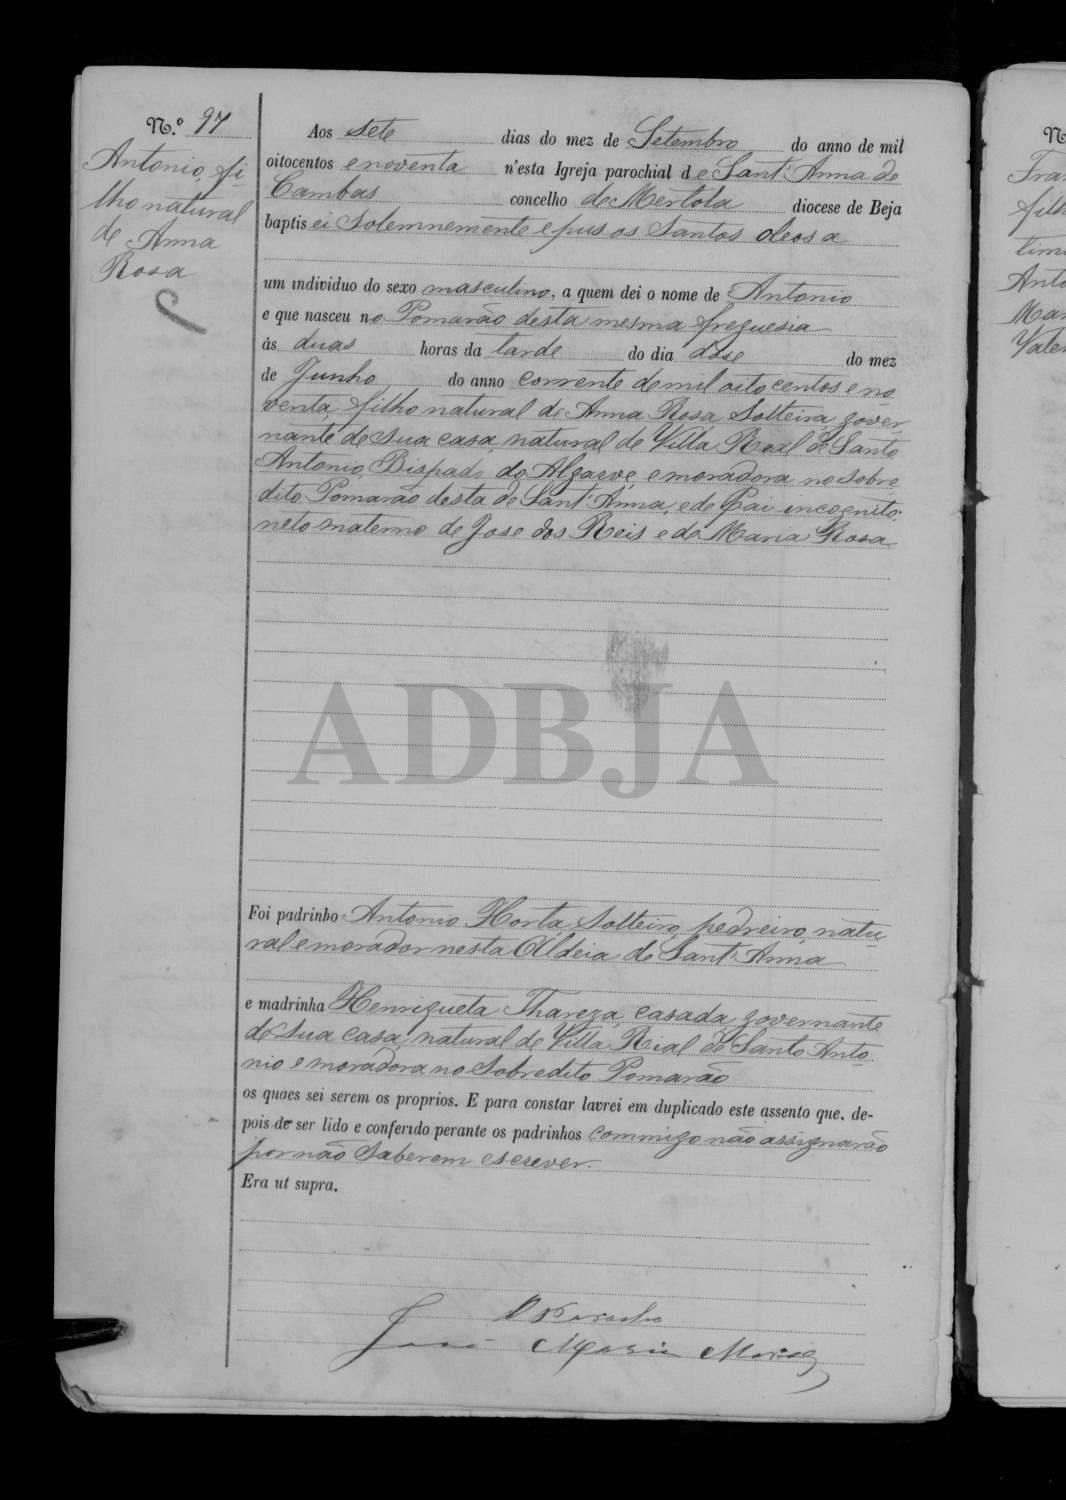 N.º 97
Antonio, fi-
lho natural
de Anna
Rosa
Aos sete dias do mez de Setembro do anno de mil
oitocentos e noventa n'esta Igreja parochial de Sant'Anna de
Cambas concelho de Mertola diocese de Beja
baptisei Solemnemente e pus os Santos oleos a
um individuo do sexo masculino, a quem dei o nome de Antonio
e que nasceu no Pomarão desta mesma freguesia
ás duas horas da tarde do dia dose do mez
de Junho do anno corrente de mil oito centos e no-
venta, filho natural de Anna Rosa Solteira, gover
nante de sua casa, natural de Villa Real de Santo
Antonio, Bispado do Algarve, e moradora no sobre-
dito Pomarão desta de Sant'Anna, e de Pai incognito:
neto materno de Jose dos Reis e de Maria Rosa
ADBJA
Foi padrinho Antonio Horta, Solteiro, pedreiro, natu-
ral e morador nesta Aldeia de Sant'Anna
e madrinha Henriqueta Thareza, casada, governante
de sua casa, natural de Villa Rial de Santo Anto-
nio e moradora no Sobredito Pomarão
os quaes sei serem os proprios. E para constar lavrei em duplicado este assento que, de-
pois de ser lido e conferido perante os padrinhos commigo não assignarão
por não Saberem escrever.
Era ut supra.
O Parocho
José Maria
N
Fra
filh
tim
Anto
Mar
Vale